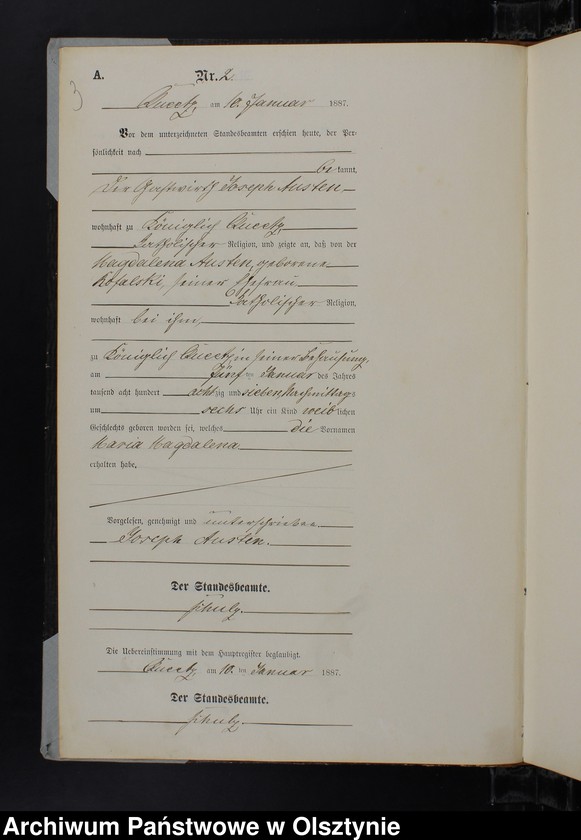 3
A.
Nr. 2.
Queetz, am 10. Januar 1887.
Vor dem unterzeichneten Standesbeamten erschien heute, der Per-
sönlichkeit nach
bekannt,
der Gastwirth Joseph Austen
wohnhaft zu Königlich Queetz,
katholischer Religion, und zeigte an, daß von der
Magdalena Austen, geborene
Kofalski, seiner Ehefrau
katholischer Religion,
wohnhaft bei ihm,
zu Königlich Queetz in seiner Behausung,
am fünften Januar des Jahres
tausend acht hundert achtzig und sieben Nachmittags
um sechs Uhr ein Kind weiblichen
Geschlechts geboren worden sei, welches die Vornamen
Maria Magdalena
erhalten habe.
Vorgelesen, genehmigt und unterschrieben
Joseph Austen.
Der Standesbeamte.
Schulz.
Die Uebereinstimmung mit dem Hauptregister beglaubigt.
Queetz, am 10. ten Januar 1887.
Der Standesbeamte.
Schulz.
Archiwum Państwowe w Olsztynie